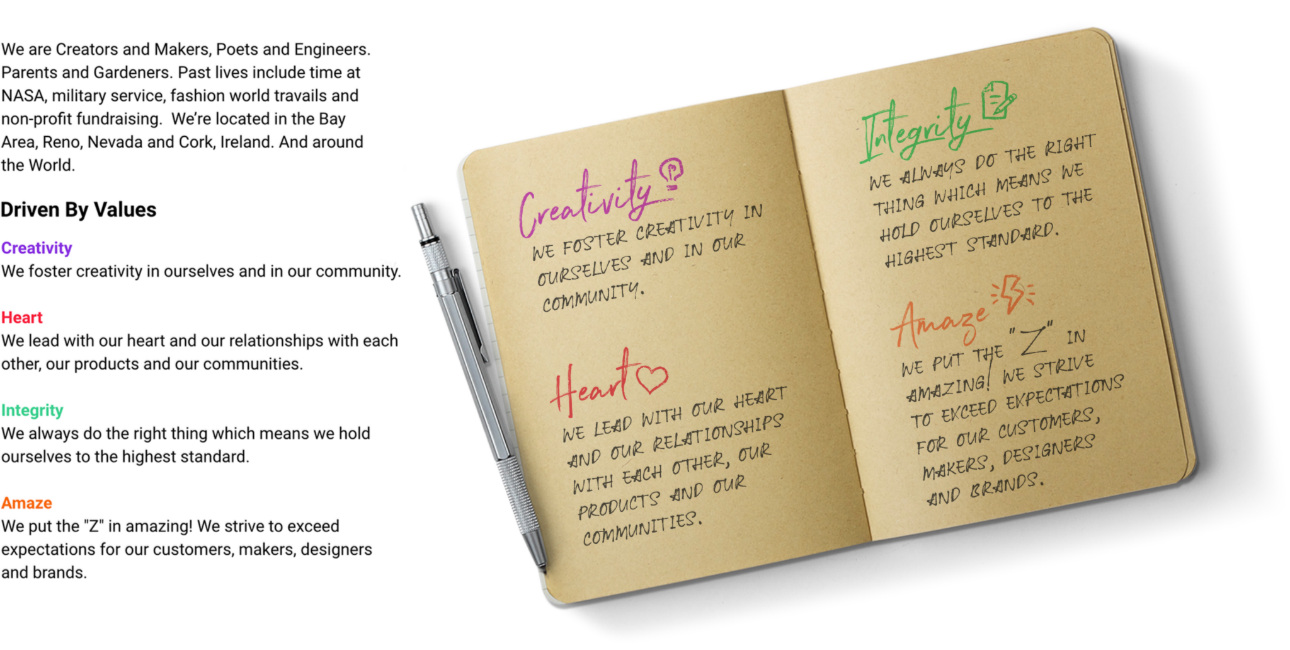 We are Creators and Makers, Poets and Engineers.
Parents and Gardeners. Past lives include time at
NASA, military service, fashion world travails and
non-profit fundraising.  We’re located in the Bay
Area, Reno, Nevada and Cork, Ireland. And around
the World.
Driven By Values
Creativity
We foster creativity in ourselves and in our community.
Heart
We lead with our heart and our relationships with each
other, our products and our communities.
Integrity
We always do the right thing which means we hold
ourselves to the highest standard.
Amaze
We put the "Z" in amazing! We strive to exceed
expectations for our customers, makers, designers
and brands.
Creativity
WE FOSTER CREATIVITY IN
OURSELVES AND IN OUR
COMMUNITY.
Heart
WE LEAD WITH OUR HEART
AND OUR RELATIONSHIPS
WITH EACH OTHER, OUR
PRODUCTS AND OUR
COMMUNITIES.
Integrity
WE ALWAYS DO THE RIGHT
THING WHICH MEANS WE
HOLD OURSELVES TO THE
HIGHEST STANDARD.
Amaze
WE PUT THE "Z" IN
AMAZING! WE STRIVE
TO EXCEED EXPECTATIONS
FOR OUR CUSTOMERS,
MAKERS, DESIGNERS
AND BRANDS.